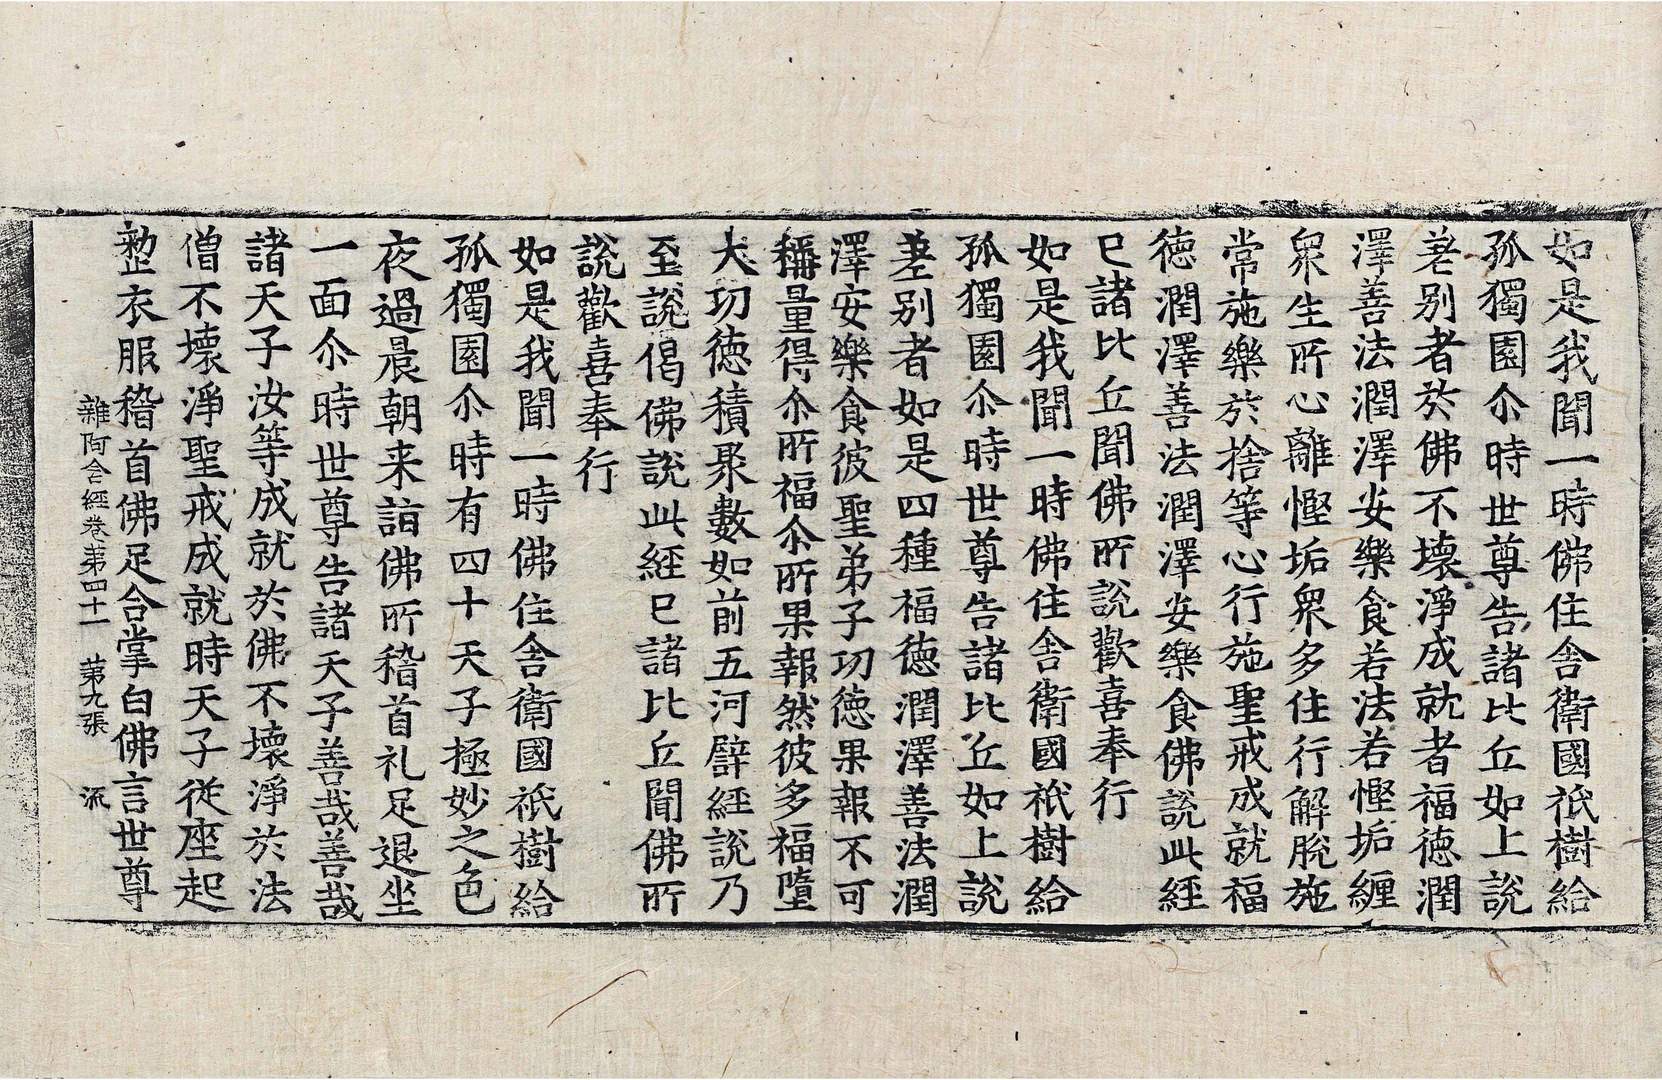 如是我聞一時佛住舍衛國祇樹給
孤獨園尒時世尊告諸比丘如上說
差別者於佛不壞淨成就者福德潤
澤善法潤澤安樂食若法若慳垢纏
衆生所心離慳垢衆多住行解脫施
常施樂於捨等心行施聖戒成就福
德潤澤善法潤澤安樂食佛說此經
已諸比丘聞佛所說歡喜奉行
如是我聞一時佛住舍衛國祇樹給
孤獨園尒時世尊告諸比丘如上說
差別者如是四種福德潤澤善法潤
澤安樂食彼聖弟子功德果報不可
稱量得尒所福尒所果報然彼多福墮
大功德積聚數如前五河譬經說乃
至說偈佛說此經已諸比丘聞佛所
說歡喜奉行
如是我聞一時佛住舍衛國祇樹給
孤獨園尒時有四十天子極妙之色
夜過晨朝来詣佛所稽首礼足退坐
一面尒時世尊告諸天子善哉善哉
諸天子汝等成就於佛不壞淨於法
僧不壞淨聖戒成就時天子從座起
整衣服稽首佛足合掌白佛言世尊
雜阿含經卷第四十一 第九張 流